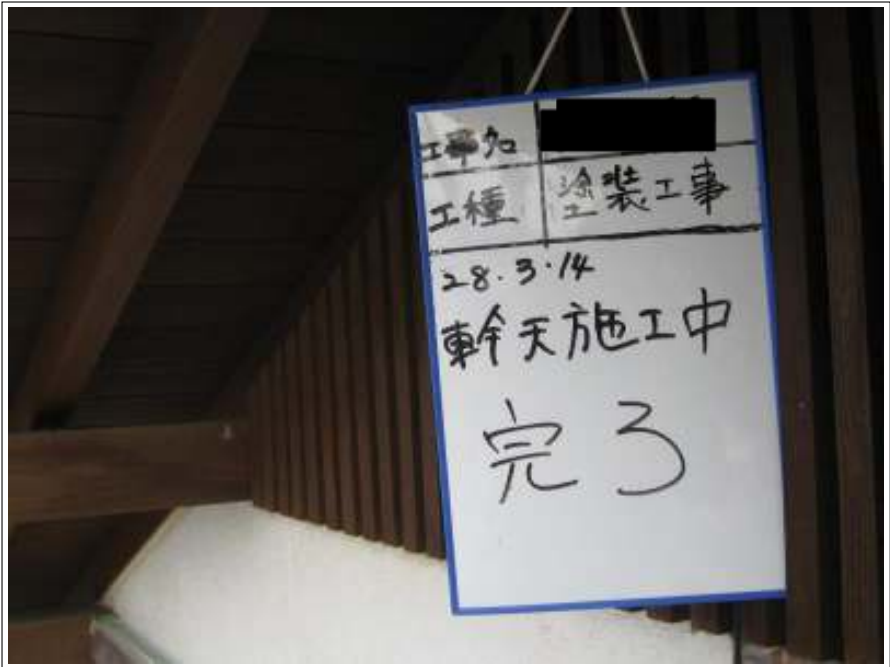 工事名
工種 塗装工事
28.3.14
軒天施工中
完了